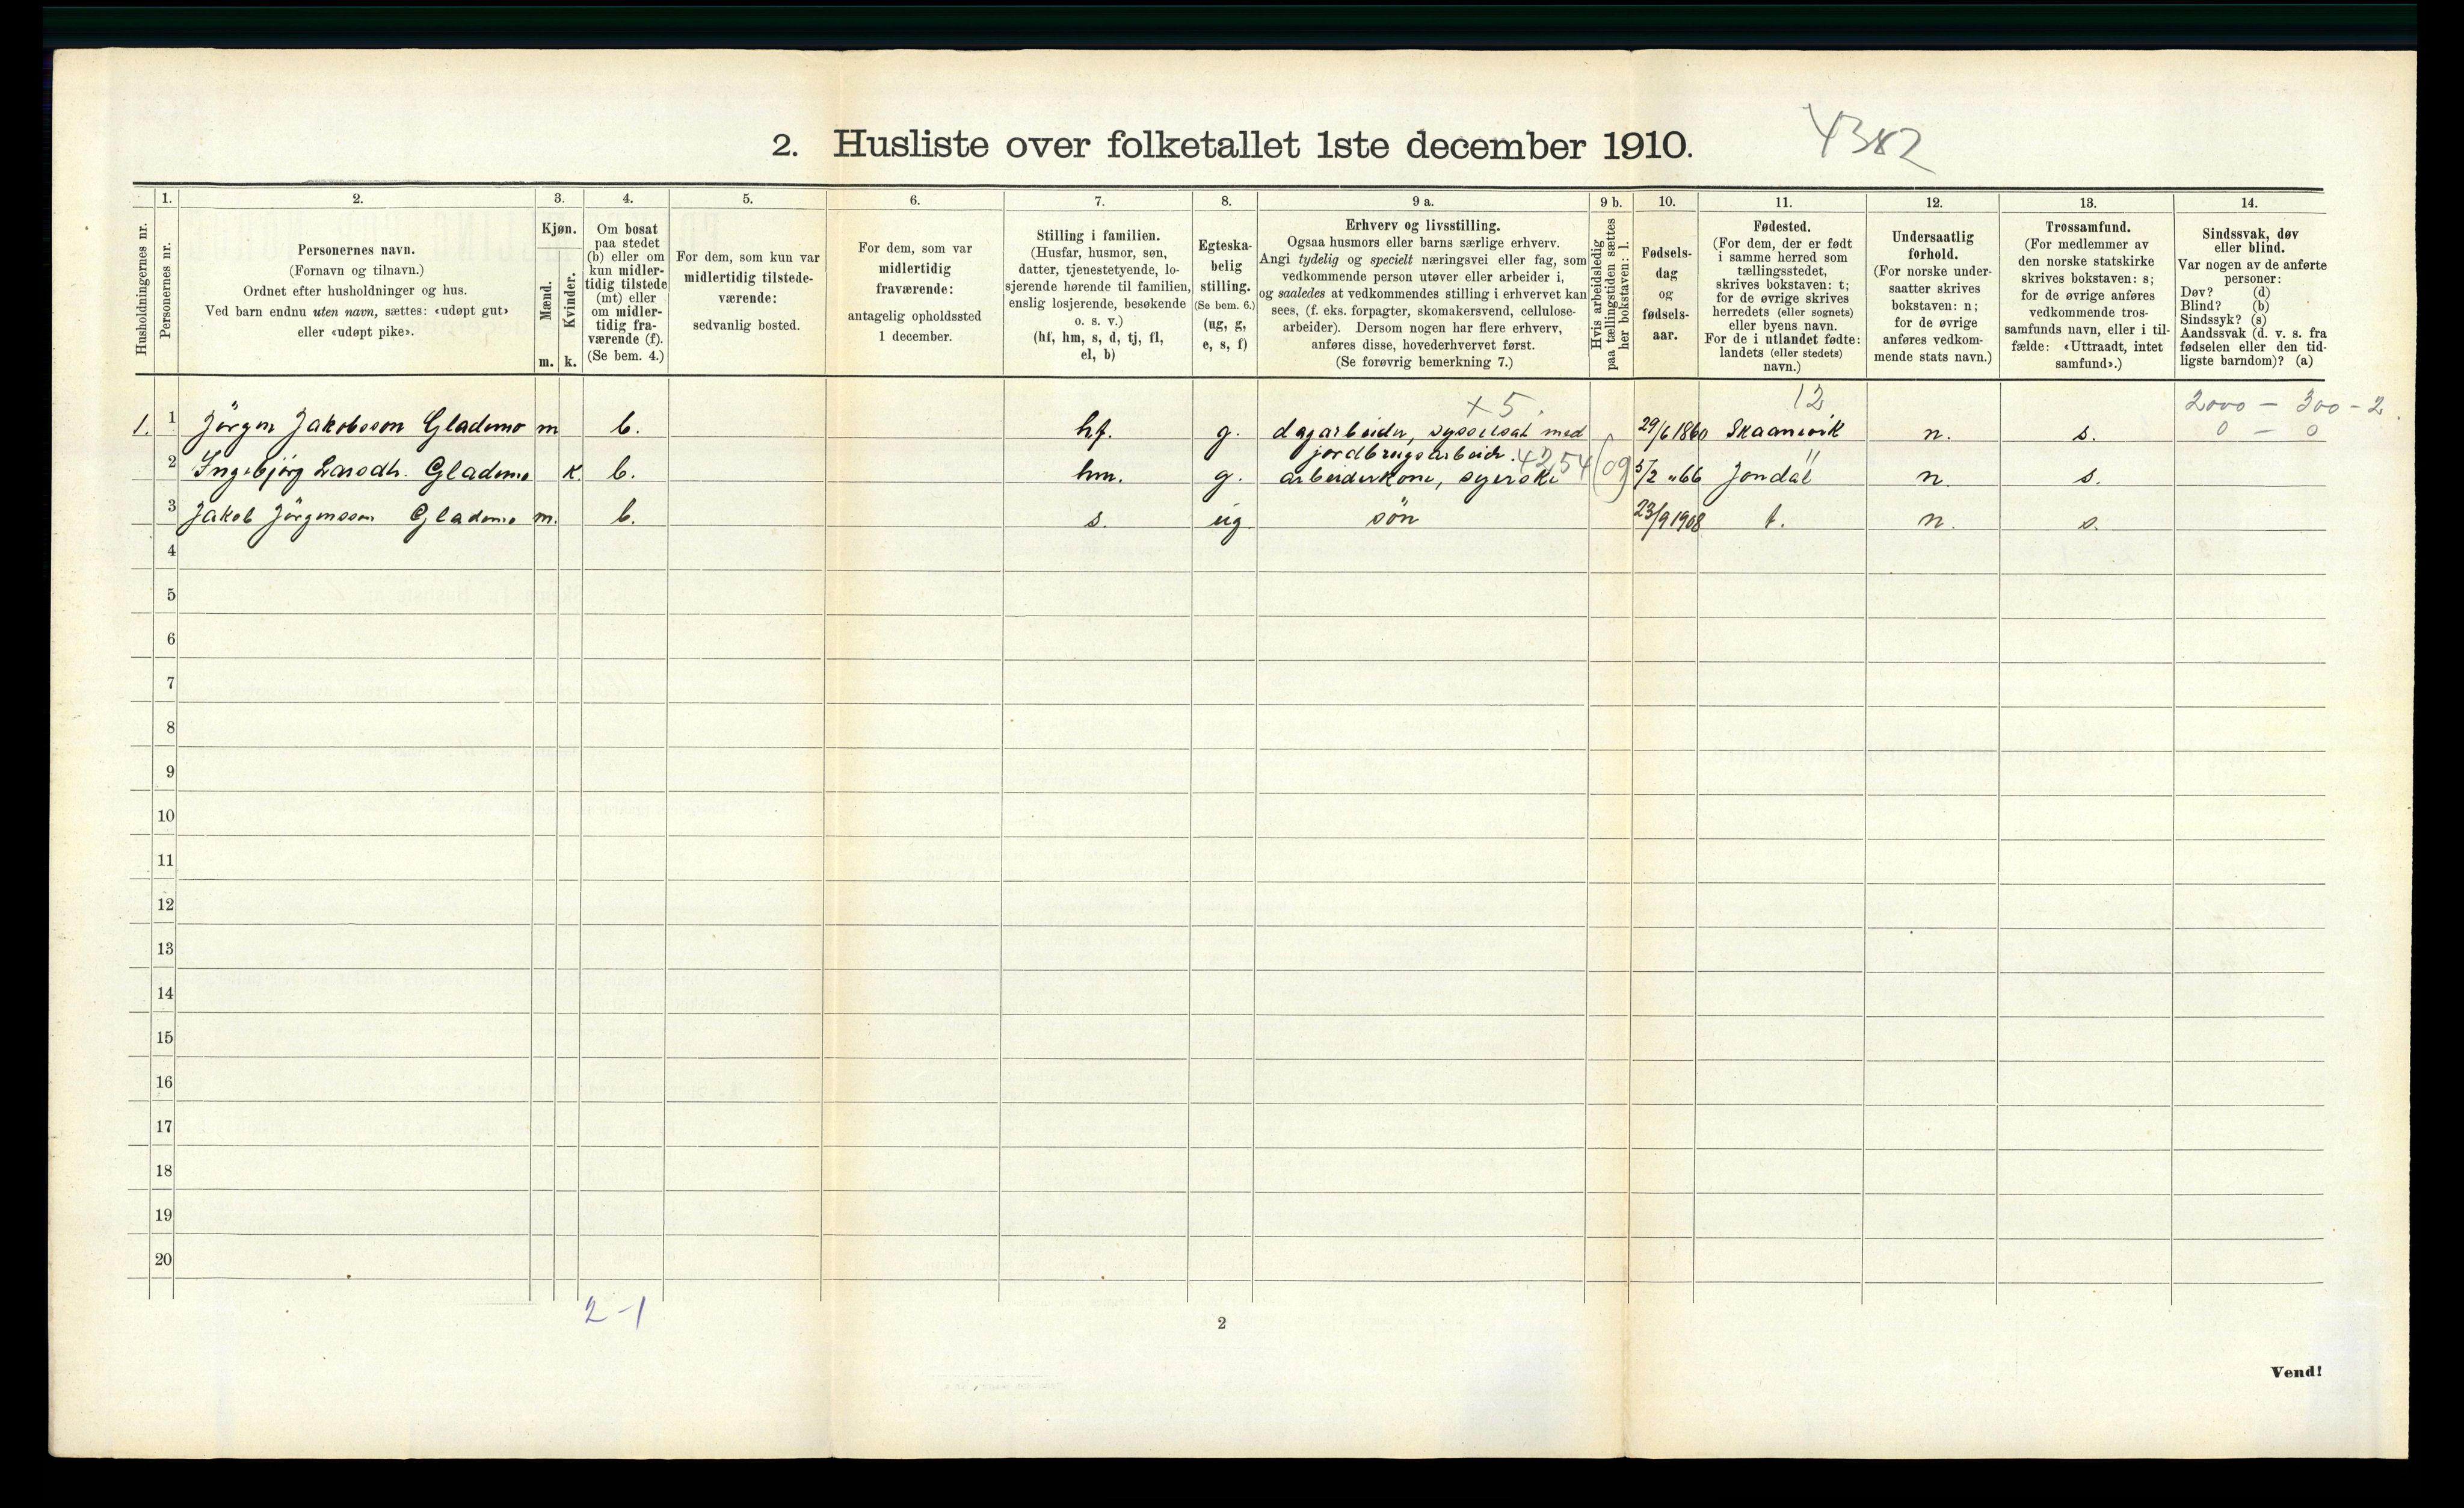 2. Husliste over folketallet 1ste december 1910.
4382
Husholdningernes nr.
1.
Personernes nr.
2.
Personernes navn.
(Fornavn og tilnavn.)
Ordnet efter husholdninger og hus.
Ved barn endnu uten navn, sættes: «udøpt gut»
eller «udøpt pike».
3.
Kjøn.
Mænd.
Kvinder.
m.
k.
4.
Om bosat
paa stedet
(b) eller om
kun midler-
tidig tilstede
(mt) eller
om midler-
tidig fra-
værende (f).
(Se bem. 4.)
5.
For dem, som kun var
midlertidig tilstede-
værende:
sedvanlig bosted.
6.
For dem, som var
midlertidig
fraværende:
antagelig opholdssted
1 december.
7.
Stilling i familien.
(Husfar, husmor, søn,
datter, tjenestetyende, lo-
sjerende hørende til familien,
enslig losjerende, besøkende
o. s. v.)
(hf, hm, s, d, tj, fl,
el, b)
8.
Egteska-
belig
stilling.
(Se bem. 6.)
(ug, g,
e, s, f)
9 a.
Erhverv og livsstilling.
Ogsaa husmors eller barns særlige erhverv.
Angi tydelig og specielt næringsvei eller fag, som
vedkommende person utøver eller arbeider i,
og saaledes at vedkommendes stilling i erhvervet kan
sees, (f. eks. forpagter, skomakersvend, cellulose-
arbeider). Dersom nogen har flere erhverv,
anføres disse, hovederhvervet først.
(Se forøvrig bemerkning 7.)
9 b.
Hvis arbeidsledig
paa tællingstiden sættes
her bokstaven: l.
10.
Fødsels-
dag
og
fødsels-
aar.
11.
Fødested.
(For dem, der er født
i samme herred som
tællingsstedet,
skrives bokstaven: t;
for de øvrige skrives
herredets (eller sognets)
eller byens navn.
For de i utlandet fødte:
landets (eller stedets)
navn.)
12.
Undersaatlig
forhold.
(For norske under-
saatter skrives
bokstaven: n;
for de øvrige
anføres vedkom-
mende stats navn.)
13.
Trossamfund.
(For medlemmer av
den norske statskirke
skrives bokstaven: s;
for de øvrige anføres
vedkommende tros-
samfunds navn, eller i til-
fælde: «Uttraadt, intet
samfund».)
14.
Sindssvak, døv
eller blind.
Var nogen av de anførte
personer:
Døv? (d)
Blind? (b)
Sindssyk? (s)
Aandssvak (d. v. s. fra
fødselen eller den tid-
ligste barndom)? (a)
+ 5.
12
2000 - 300 - 2
0 - 0
1. 1 Jörgen Jakobsson Glademo m b. hf. g. dagarbeider, sysselsat med 29/6 1860 Skaanevik n. s.
jordbrugsarbeide. 4254 (09) 11
2 Ingebjörg Larsdtr. Glademo k. b. hm. g. arbeiderkone, syerske 5/2 "66 Jondal n. s.
3 Jakob Jörgensson Glademo m. b. s. ug. sön 23/9 1908 t. n. s.
4
5
6
7
8
9
10
11
12
13
14
15
16
17
18
19
20
2-1
2
Vend!